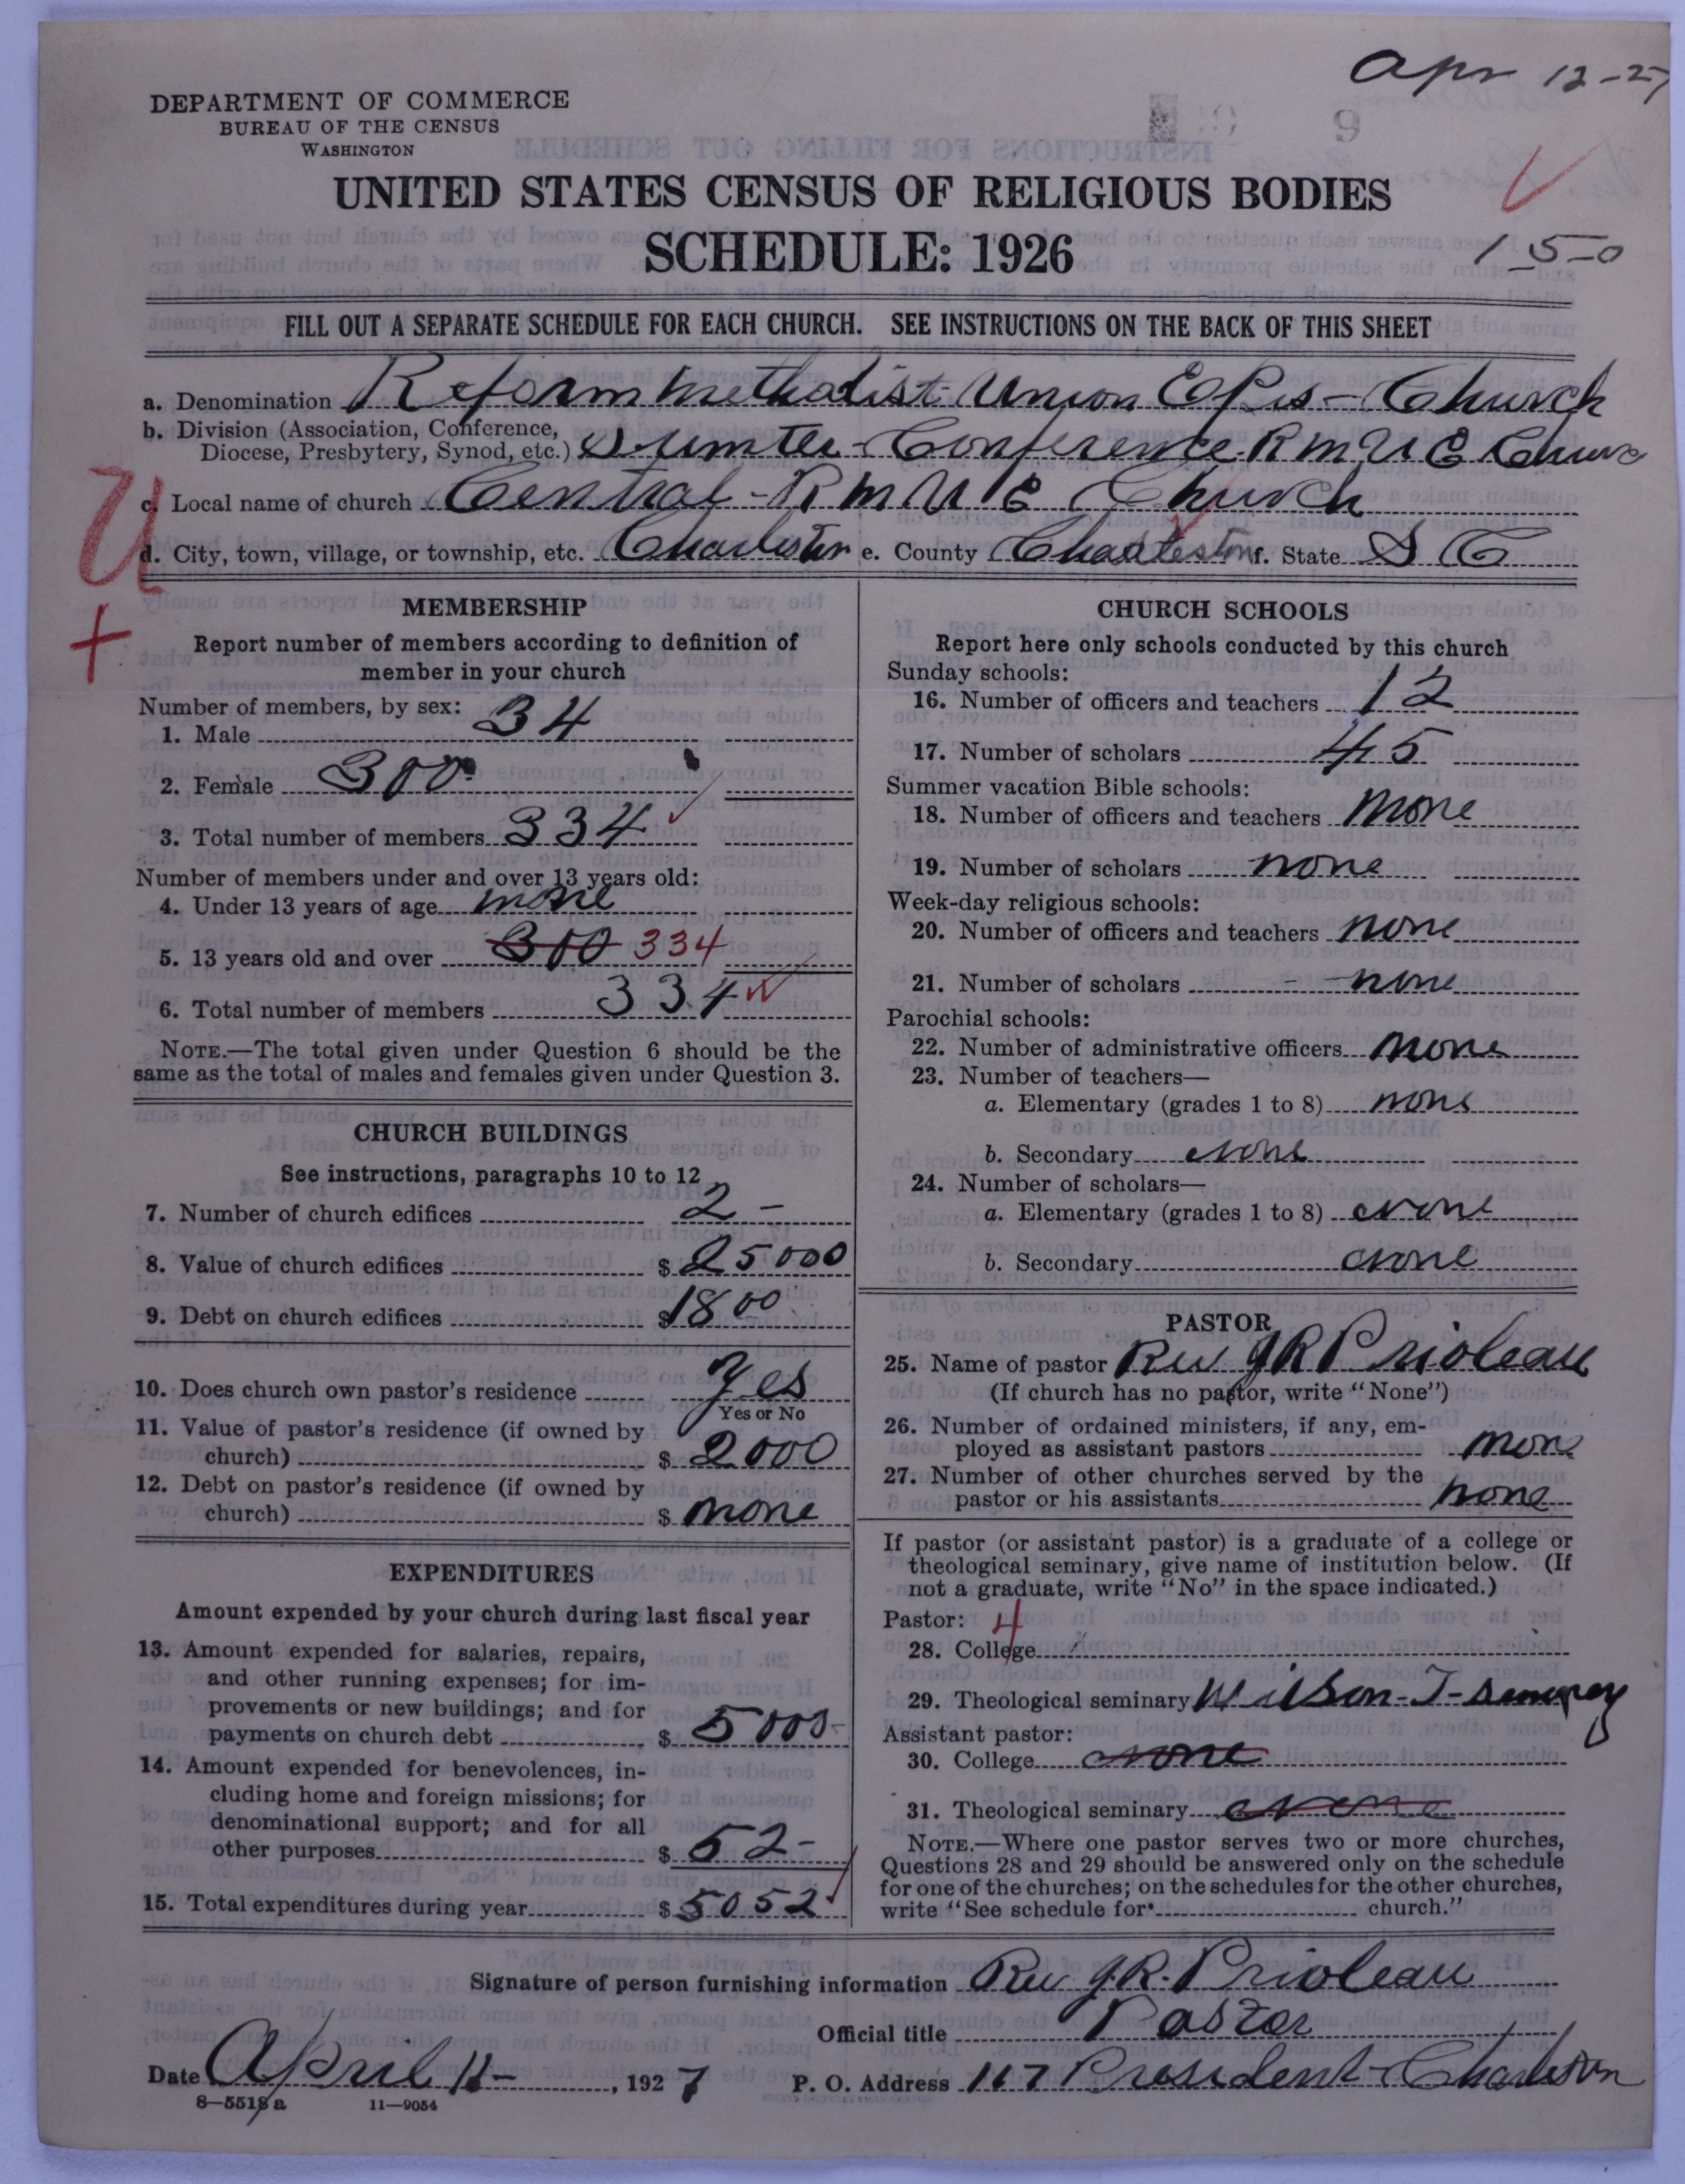 Apr 12-27
DEPARTMENT OF COMMERCE
BUREAU OF THE CENSUS
WASHINGTON
UNITED STATES CENSUS OF RELIGIOUS BODIES
SCHEDULE: 1926
1-5-0
FILL OUT A SEPARATE SCHEDULE FOR EACH CHURCH. SEE INSTRUCTIONS ON THE BACK OF THIS SHEET
a. Denomination Reform Methodist Union Epis - Church
b. Division (Association, Conference,
Diocese, Presbytery, Synod, etc.) Sumter - Conference R M U E Churc
c. Local name of church Central - R M U E Church
d. City, town, village, or township, etc. Charleston e. County Charleston f. State S C
U
+
MEMBERSHIP
Report number of members according to definition of
member in your church
Number of members, by sex:
1. Male 34
2. Female 300
3. Total number of members 334
Number of members under and over 13 years old:
4. Under 13 years of age none
5. 13 years old and over 300 334
6. Total number of members 334
NOTE.—The total given under Question 6 should be the
same as the total of males and females given under Question 3.
CHURCH BUILDINGS
See instructions, paragraphs 10 to 12
7. Number of church edifices 2 -
8. Value of church edifices $ 25000
9. Debt on church edifices $ 1800
10. Does church own pastor's residence Yes
Yes or No
11. Value of pastor's residence (if owned by
church) $ 2000
12. Debt on pastor's residence (if owned by
church) $ none
EXPENDITURES
Amount expended by your church during last fiscal year
13. Amount expended for salaries, repairs,
and other running expenses; for im-
provements or new buildings; and for
payments on church debt $ 5000-
14. Amount expended for benevolences, in-
cluding home and foreign missions; for
denominational support; and for all
other purposes $ 52-
15. Total expenditures during year $ 5052
CHURCH SCHOOLS
Report here only schools conducted by this church
Sunday schools:
16. Number of officers and teachers 12
17. Number of scholars 45
Summer vacation Bible schools:
18. Number of officers and teachers none
19. Number of scholars none
Week-day religious schools:
20. Number of officers and teachers none
21. Number of scholars none
Parochial schools:
22. Number of administrative officers none
23. Number of teachers—
a. Elementary (grades 1 to 8) none
b. Secondary none
24. Number of scholars—
a. Elementary (grades 1 to 8) none
b. Secondary none
PASTOR
25. Name of pastor Rev J R Prioleau
(If church has no pastor, write "None")
26. Number of ordained ministers, if any, em-
ployed as assistant pastors none
27. Number of other churches served by the
pastor or his assistants none
If pastor (or assistant pastor) is a graduate of a college or
theological seminary, give name of institution below. (If
not a graduate, write "No" in the space indicated.)
Pastor: 4
28. College
29. Theological seminary Wilson - T -
Assistant pastor:
30. College none
31. Theological seminary none
NOTE.—Where one pastor serves two or more churches,
Questions 28 and 29 should be answered only on the schedule
for one of the churches; on the schedules for the other churches,
write "See schedule for church."
Signature of person furnishing information Rev J. R. Prioleau
Official title Pastor
Date April 11-, 1927 P. O. Address 117 President - Charleston
8—5518 a 11—9054